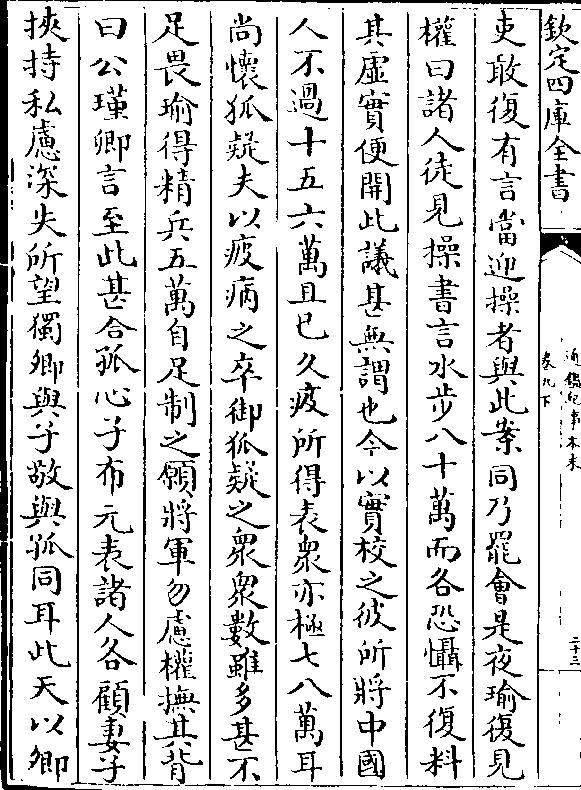 欽定四庫全書
通鑑紀事本末
卷九下
二十三
吏敢復有言當迎操者與此案同乃罷會是夜瑜復見
權曰諸人徒見操書言水步八十萬而各恐懾不復料
其虛實便開此議甚無謂也今以實校之彼所將中國
人不過十五六萬且已久疲所得表衆亦極七八萬耳
尚懷狐疑夫以疲病之卒御狐疑之衆衆數雖多甚不
足畏瑜得精兵五萬自足制之願將軍勿慮權撫其背
曰公瑾卿言至此甚合孤心子布元表諸人各顧妻子
挾持私慮深失所望獨卿與子敬與孤同耳此天以卿